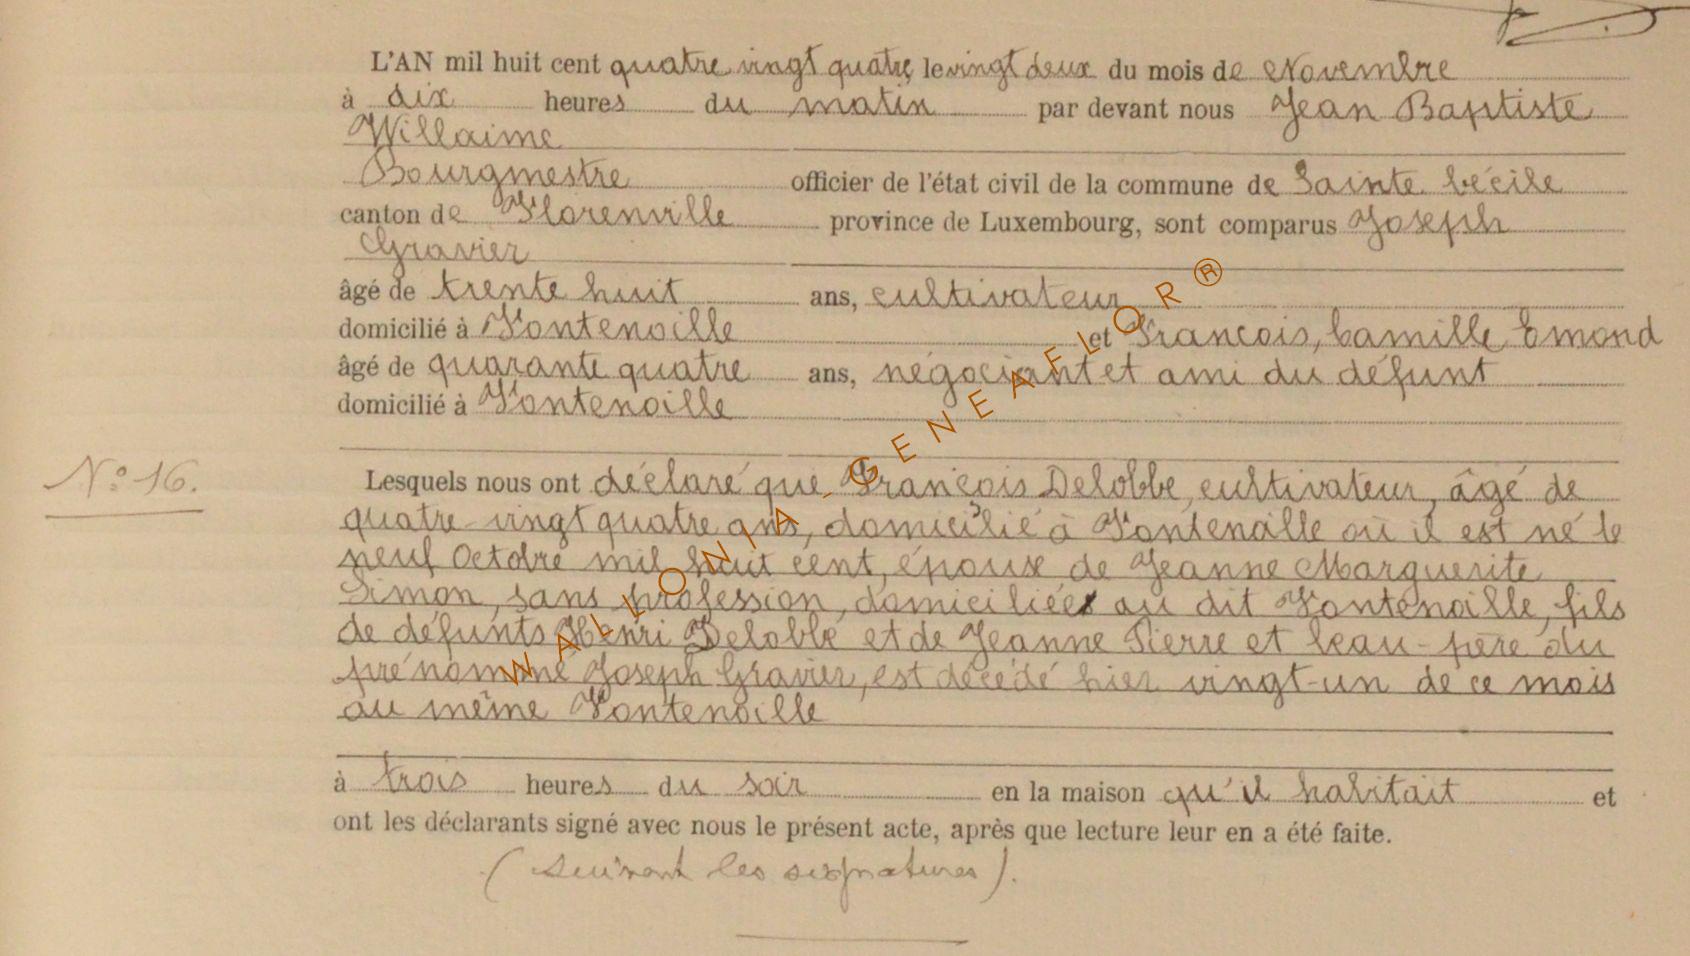 L'AN mil huit cent quatre vingt quatre le vingt deux du mois de Novembre
à dix heures du matin par devant nous Jean Baptiste
Willaime
Bourgmestre officier de l'état civil de la commune de Sainte Cécile
canton de Florenville province de Luxembourg, sont comparus Joseph
Gravier
âgé de trente huit ans, cultivateur
domicilié à Fontenoille et Francois, Camille Emond
âgé de quarante quatre ans, négociant et ami du défunt
domicilié à Fontenoille
N° 16.
Lesquels nous ont déclaré que François Delobbe, cultivateur, âgé de
quatre-vingt quatre ans, domicilié à Fontenoille où il est né le
neuf Octobre mil huit cent, époux de Jeanne Marguerite
Simon, sans profession, domiciliée au dit Fontenoille, fils
de défunts Henri Delobbe et de Jeanne Pierre et beau-père du
prénommé Joseph Gravier, est décédé hier vingt-un de ce mois
au même Fontenoille
à trois heures du soir en la maison qu'il habitait et
ont les déclarants signé avec nous le présent acte, après que lecture leur en a été faite.
(suivent les signatures).
WALLONIA-GENEAFLOR®